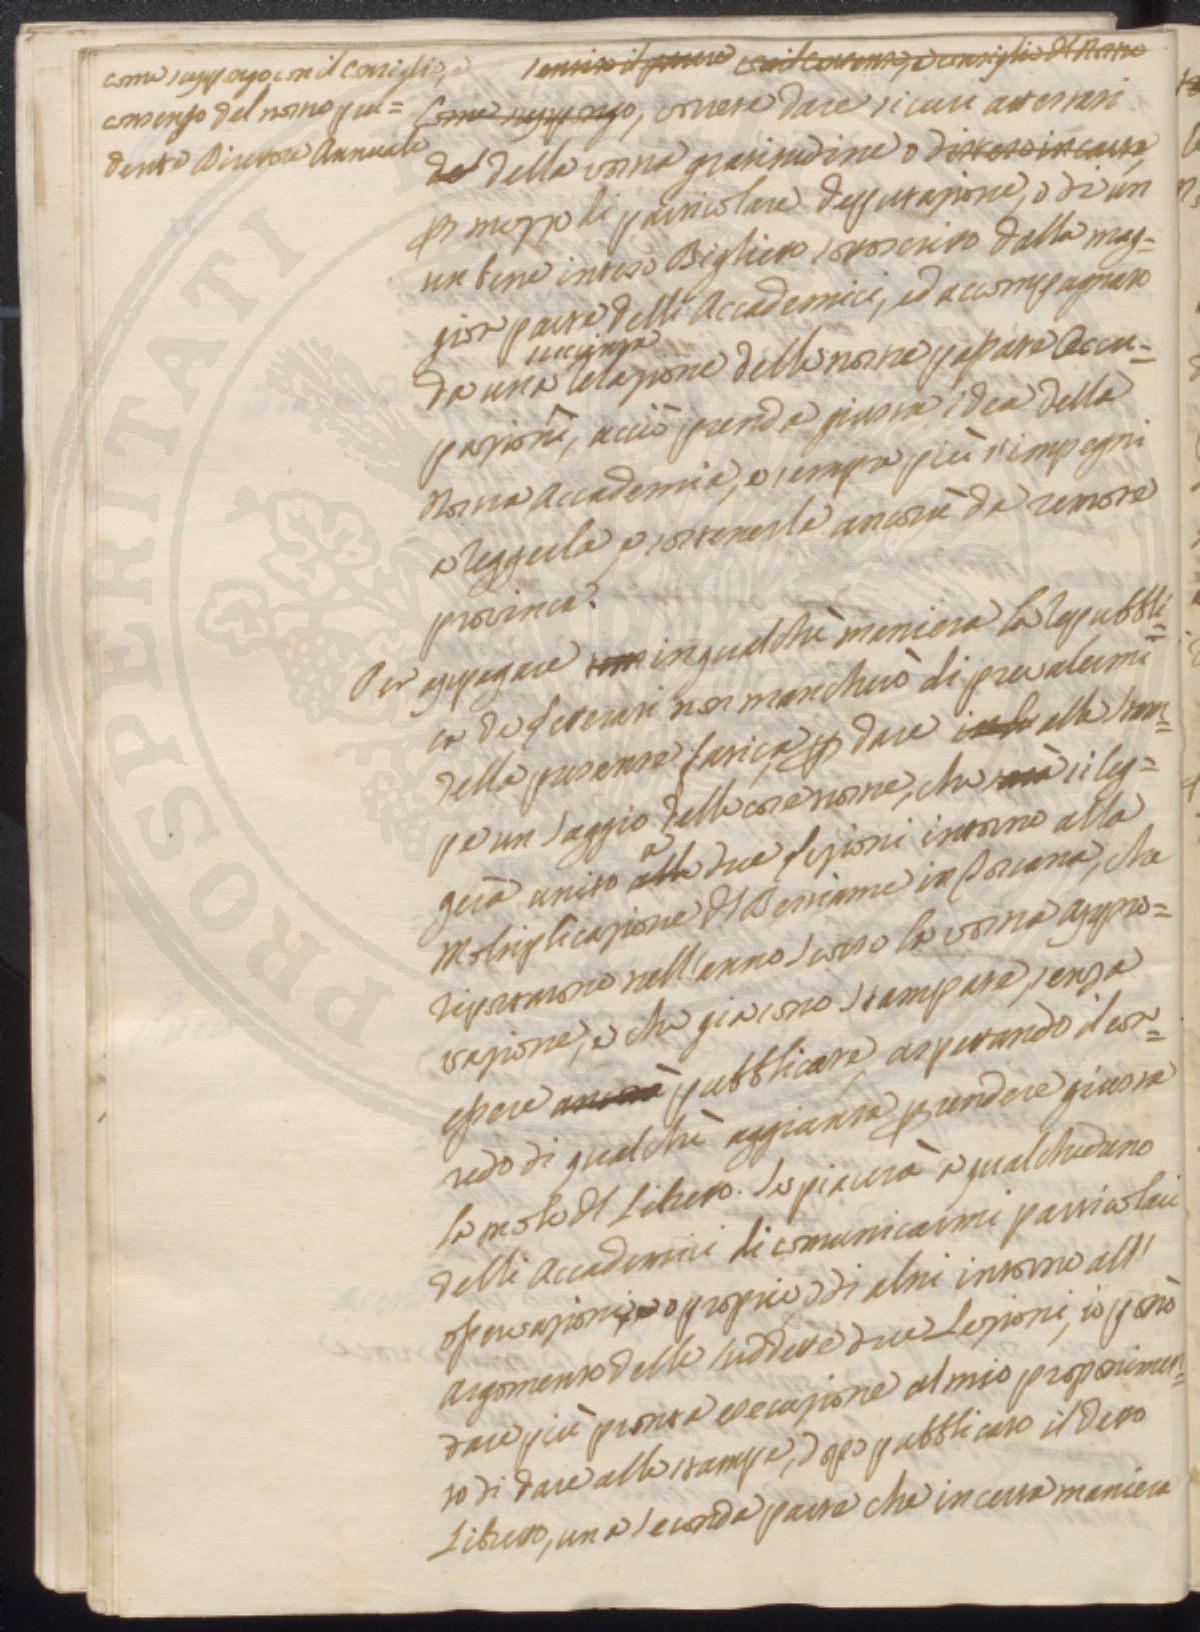 come suppongo con il consiglio, e
consenso del nostro pru=
dente Direttore Annuale
sentito il parere con il consenso, e consiglio del nostro
Come suppongo, vorrete dare sicuri attestati
del della vostra gratitudine o
per mezzo di particolare deputazione, o di un
un bene inteso Biglietto sottoscritto dalla mag=
gior parte delli Accademici, ed accompagnato
succinta
da una relazione delle nostre passate occu=
pazioni, acciò prenda giusta idea della
nostra Accademia, e sempre più s'impegni
a reggerla, e sostenerla ancora da remote
provincie.
Per appagare in qualche maniera la Repubbli=
ca de Letterati non mancherò di prevalermi
della presente fatica per dare alla stam=
pa un saggio delle cose nostre, che sarà si leg=
gerà unito alle due Lezioni intorno alla
Moltiplicazione del Bestiame in Toscana, che
riportarono nell'anno scorso la vostra appro=
vazione, e che giaciono stampate, senza
essere ancora pubblicate, aspettando il cor=
redo di qualche aggiunta per rendere giusta
la mole del Libretto. Se piacerà a qualcheduno
delli Accademici di comunicarmi particolari
osservazioni, o proprie, o di altri intorno all'
argomento delle suddette due Lezioni, io potrò
dare più pronta esecuzione al mio proponimen=
to di dare alle stampe, dopo pubblicato il detto
Libretto, una seconda parte che in certa maniera